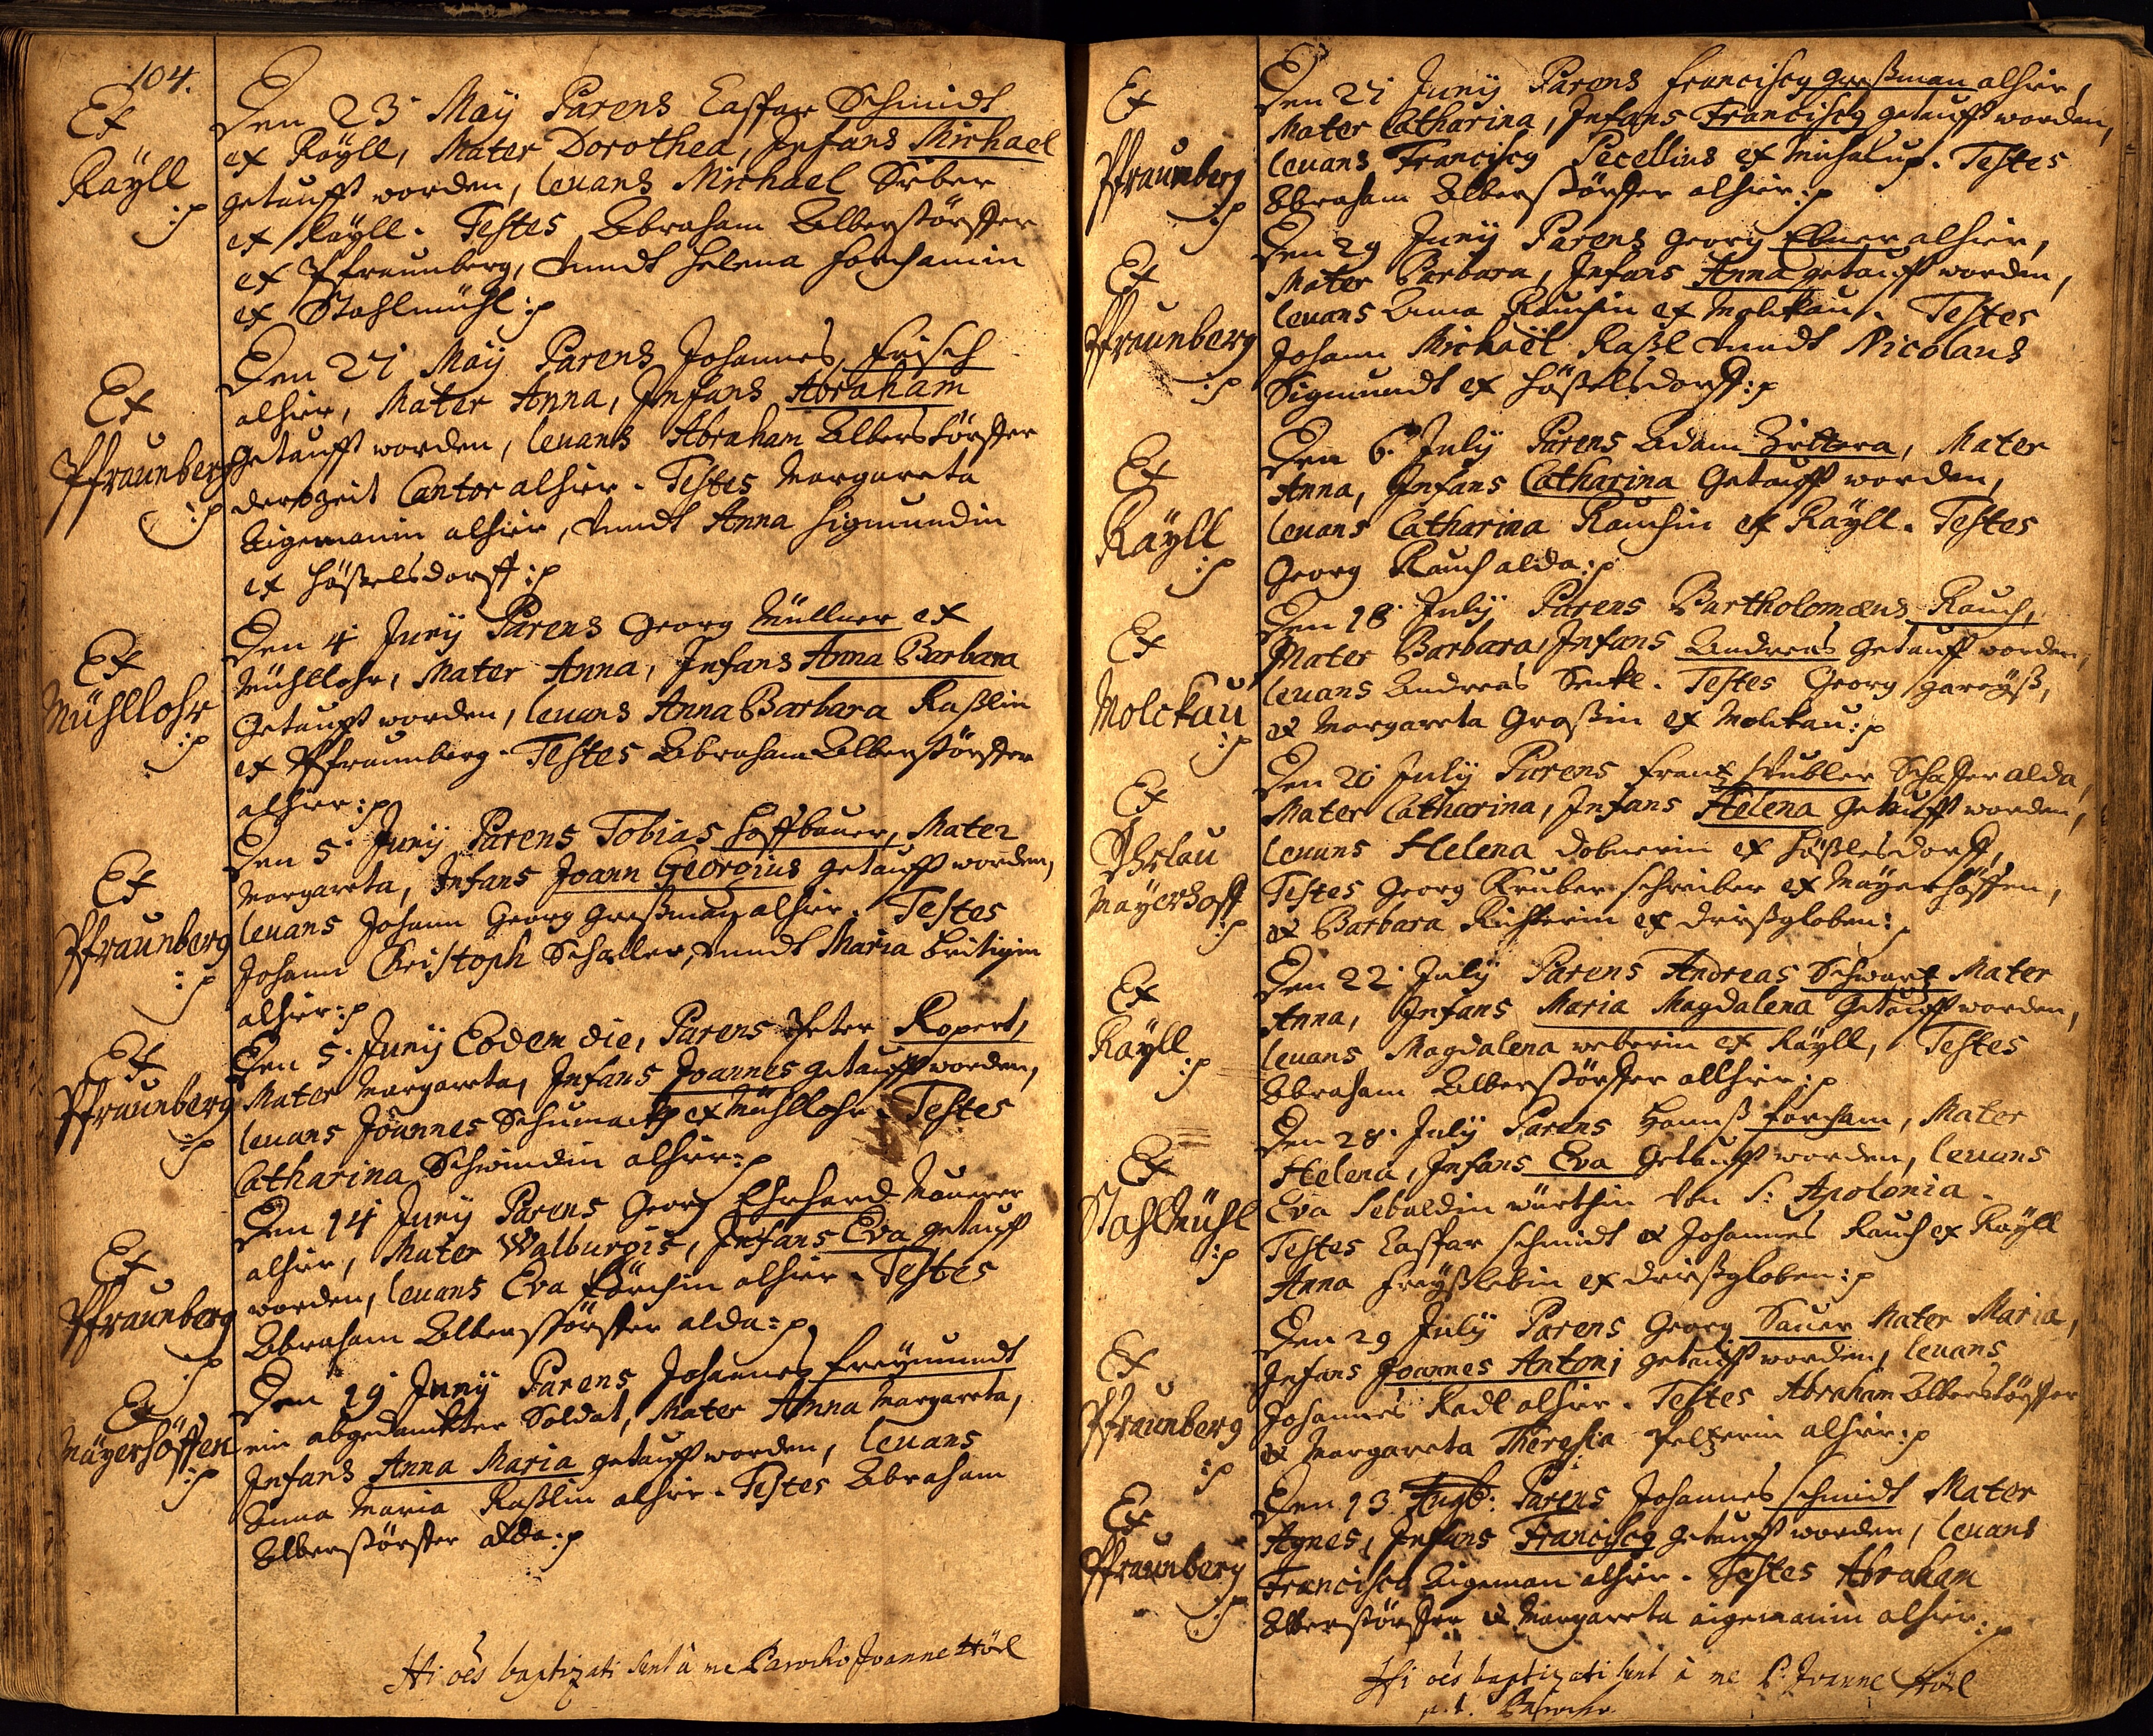 104.
Ex
Räyll
:p
Den 23 May Parens Caspar Schmidt
ex Räyll, Mater Dorothea, Infans Michael
getaufft worden, levans Michael
ex Räyll. Testes Abraham Alberstörffer
ex Pfraunberg, vnndt Helena Forchamin
ex Stahlmühl :p
Ex
Pfraunberg
:p
Den 27 May Parens Johannes Frisch
alhier, Mater Anna, Infans Abraham
Getaufft worden, levans Abraham Alberstörffer
derzeit Cantor alhier. Testes Margareta
Aigemanin alhier, vnndt Anna Sigmundin
ex Hößelsdorff :p
Ex
Mühllohr
:p
Den 4 Juny Parens Georg Müllner ex
Mühllohr, Mater Anna, Infans Anna Barbara
Getaufft worden, levans Anna Barbara Raßlin
ex Pfraunberg. Testes Abraham Alberstörffer
alhier :p
Ex
Pfraunberg
:p
Den 5 Juny Parens Tobias Hoffbauer, Mater
Margareta, Infans Joann Georgius getaufft worden,
levans Johann Georg Großman alhier. Testes
Johann Christoph Schaller, vnndt Maria
alhier :p
Ex
Pfraunberg
:p
Den 5. Juny Eodem die, Parens Peter Ropert,
Mater Margareta, Infans Joannes getaufft worden,
levans Joannes Schumach ex Mühllohr. Testes
Catharina Schwindin alhier :p
Ex
Pfraunberg
:p
Den 14 Juny Parens Georg Ehrhard Maurer
alhier, Mater Walburgis, Infans Eva getaufft
worden, levans Eva alhier. Testes
Abraham Alberstörffer alda :p
Ex
Mäyerhöffen
:p
Den 19 Juny Parens Johannes Freymundt
ein abgedanckter Soldat, Mater Anna Margareta,
Infans Anna Maria getaufft worden, levans
Anna Maria Raßlin alhier. Testes Abraham
Alberstörffer alda :p
Hi oēs baptizati sunt à me Parocho Joanne Hörl
Ex
Pfraunberg
:p
Den 27 Juny Parens Franciscq Großman alhier,
Mater Catharina, Infans Franciscq getaufft worden,
levans Franciscq Pecellius ex Michalup. Testes
Abraham Alberstörffer alhier :p
Ex
Pfraunberg
:p
Den 29 Juny Parens Georg Ebner alhier,
Mater Barbara, Infans Anna getaufft worden,
levans Anna Rauchin ex Molckau. Testes
Johann Michaël Raßl vnndt Nicolaus
Sigmundt ex Hößelsdorff :p
Ex
Räyll
:p
Den 6. July Parens Adam Zettera, Mater
Anna, Infans Catharina Getaufft worden,
levans Catharina Rauchin ex Räyll. Testes
Georg Rauch alda :p
Ex
Molckau
:p
Den 18 July Parens Bartholomæus Rauch,
Mater Barbara, Infans Andreas Getaufft worden,
levans Andreas Senkl. Testes Georg
& Margareta Großin ex Molckau :p
Ex
Mayerhoff
:p
Den 20 July Parens Frantz Stubler Schaffer alda,
Mater Catharina, Infans Helena Getaufft worden,
levans Helena Dobnerin ex Hößlesdorff,
Testes Georg Gruber schreiber ex Mäyerhöffen,
& Barbara Richterin ex Drißgloben :
Ex
Räyll
:p
Den 22 July Parens Andreas Schwartz Mater
Anna, Infans Maria Magdalena Getaufft worden,
levans Magdalena weberin ex Räyll, Testes
Abraham Alberstörffer allhier :p
Ex
StahlMühl
:p
Den 28. July Parens Hannß Forcham, Mater
Helena, Infans Eva Getaufft worden, levans
Eva Sebaldin würthin Von S: Apolonia.
Testes Caspar Schmidt & Johannes Rauch ex Räyll
Anna ex Drißgloben :p
Ex
Pfraunberg
:p
Den 29 July Parens Georg Sauer Mater Maria,
Infans Joannes Antoni getaufft worden, levans
Johannes Radl alhier. Testes Abraham Alberstörffer
& Margareta Theresia Peltzerin alhier :p
Ex
Pfraunberg
:p
Den 13 Augb: Parens Johannes Schmidt Mater
Agnes, Infans Franciscq Getaufft worden, levans
Franciscq Aigeman alhier. Testes Abraham
Alberstörffer & Margareta Aigemanin alhier :p
Hi oēs baptizati sunt à me P. Joanne Hörl
p.t. Parocho